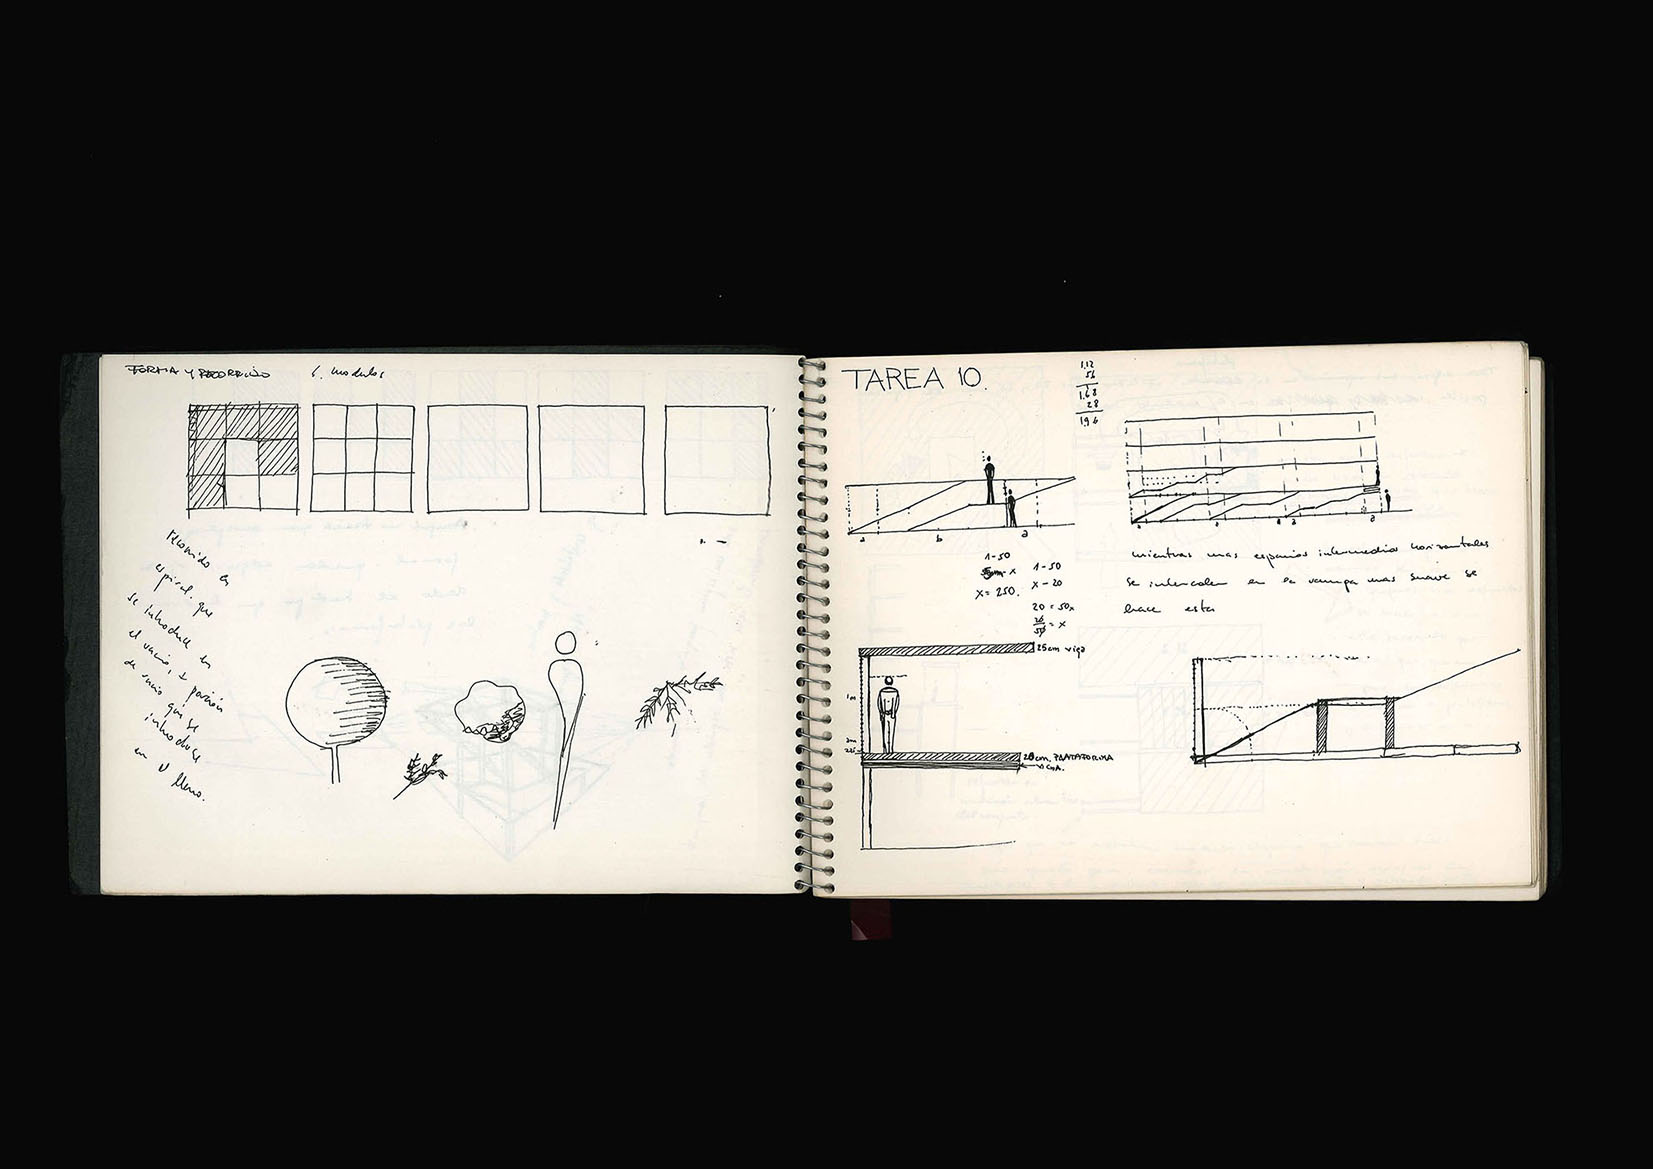 FORMA Y RECORRIDO
6. modulos
Recorrido en
espiral. que
se introduce en
el vacio, 1 porción
de vacio que se
introduce
en el lleno.
TAREA 10.
1,12
56
1,68
28
196
a
b
a
1-50
x
x = 250.
1-50
x-20
20 = 50x
20/50 = x
mientras mas espacios intermedios horizontales
se intercalen en la rampa mas suave se
hace esta
25cm viga
1m
20cm. PLATAFORMA
VIGA.